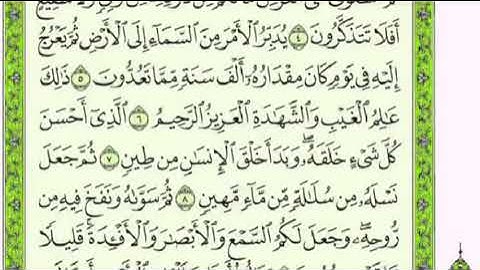 أَفَلَا تَتَذَكَّرُونَ ٤ يُدَبِّرُ الْأَمْرَ مِنَ السَّمَاءِ إِلَى الْأَرْضِ ثُمَّ يَعْرُجُ
إِلَيْهِ فِي يَوْمٍ كَانَ مِقْدَارُهُۥ أَلْفَ سَنَةٍ مِّمَّا تَعُدُّونَ ٥ ذَٰلِكَ
عَٰلِمُ الْغَيْبِ وَالشَّهَٰدَةِ الْعَزِيزُ الرَّحِيمُ ٦ الَّذِي أَحْسَنَ
كُلَّ شَيْءٍ خَلَقَهُۥ ۖ وَبَدَأَ خَلْقَ الْإِنسَٰنِ مِن طِينٍ ٧ ثُمَّ جَعَلَ
نَسْلَهُۥ مِن سُلَٰلَةٍ مِّن مَّاءٍ مَّهِينٍ ٨ ثُمَّ سَوَّىٰهُ وَنَفَخَ فِيهِ مِن
رُّوحِهِۦ ۖ وَجَعَلَ لَكُمُ السَّمْعَ وَالْأَبْصَٰرَ وَالْأَفْـِٔدَةَ ۚ قَلِيلًا